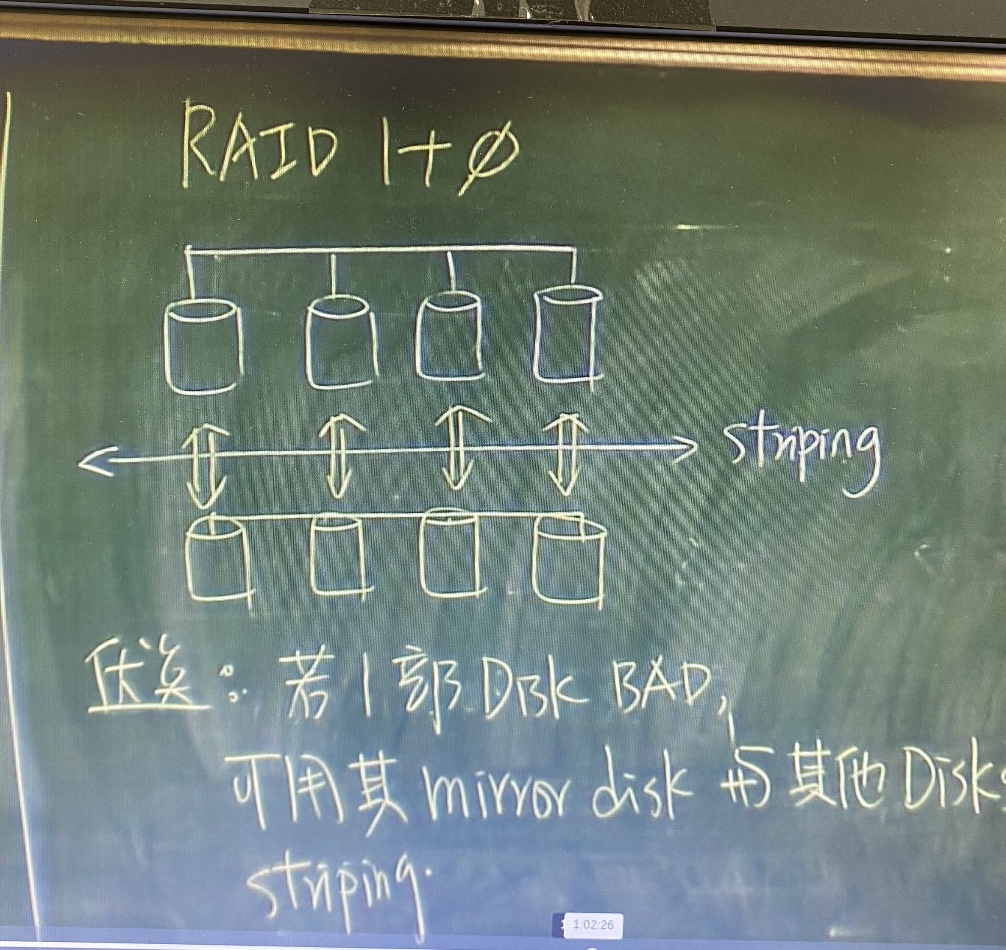 RAID 1+0
striping
优点: 若1部 Disk BAD,
可用其 mirror disk 与其他 Disks
striping.
1:02:26